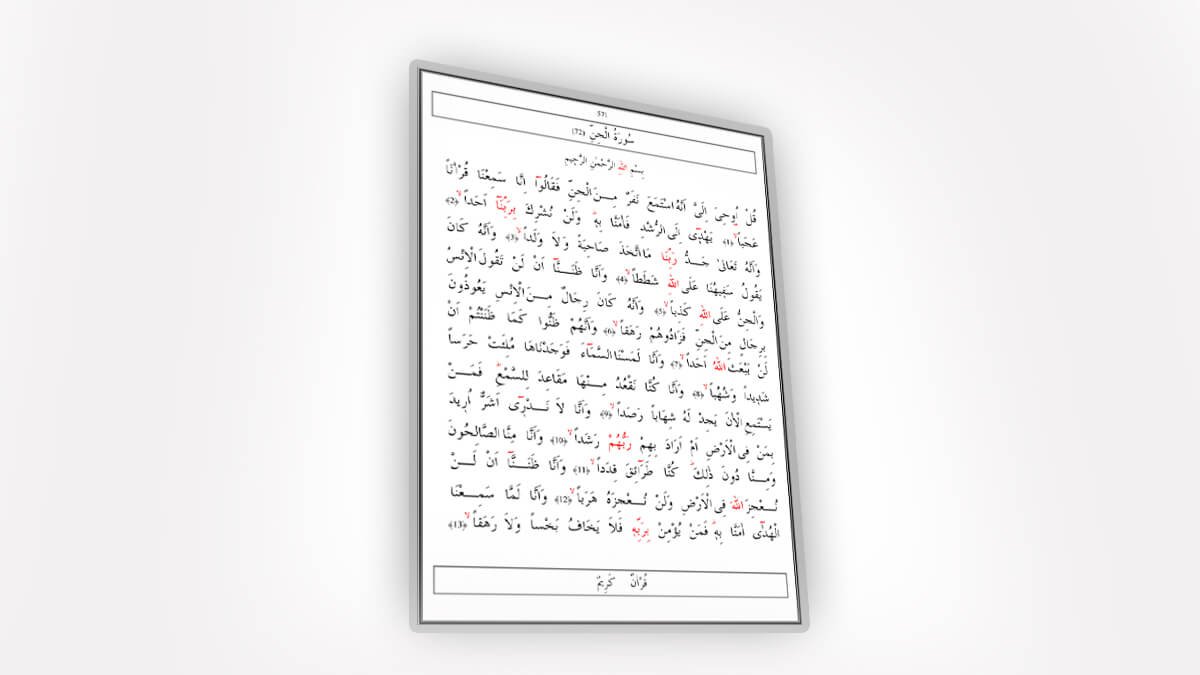 571
سُورَةُ الْجِنِّ (72)
بِسْمِ اللهِ الرَّحْمٰنِ الرَّحِيمِ
قُلْ اُوحِىَ اِلَىَّ اَنَّهُ اسْتَمَعَ نَفَرٌ مِـنَ الْجِنِّ فَقَالُوٓا اِنَّا سَمِعْنَا قُرْاٰناً
عَجَباًۙ ﴿1﴾ يَهْدٖٓى اِلَى الرُّشْدِ فَاٰمَنَّا بِهٖۜ وَلَنْ نُشْرِكَ بِرَبِّنَٓا اَحَداًۙ ﴿2﴾
وَاَنَّهُ تَعَالٰى جَـدُّ رَبِّنَا مَا اتَّخَذَ صَاحِبَةً وَلَا وَلَداًۙ ﴿3﴾ وَاَنَّهُ كَانَ
يَقُولُ سَفِيهُنَا عَلَى اللهِ شَطَطاًۙ ﴿4﴾ وَاَنَّا ظَنَـنَّٓا اَنْ لَنْ تَقُولَ الْاِنْسُ
وَالْجِنُّ عَلَى اللهِ كَذِباًۙ ﴿5﴾ وَاَنَّهُ كَانَ رِجَالٌ مِـنَ الْاِنْسِ يَعُوذُونَ
بِرِجَالٍ مِنَ الْجِنِّ فَزَادُوهُمْ رَهَقاًۙ ﴿6﴾ وَاَنَّهُمْ ظَنُّوا كَمَا ظَنَنْتُمْ اَنْ
لَنْ يَبْعَثَ اللهُ اَحَداًۙ ﴿7﴾ وَاَنَّا لَمَسْنَا السَّمَٓاءَ فَوَجَدْنَاهَا مُلِئَتْ حَرَساً
شَدِيداً وَشُهُباًۙ ﴿8﴾ وَاَنَّا كُنَّا نَقْعُدُ مِـنْهَا مَقَاعِدَ لِلسَّمْعِۜ فَمَـنْ
يَسْتَمِعِ الْاٰنَ يَجِدْ لَهُ شِهَاباً رَصَداًۙ ﴿9﴾ وَاَنَّا لَا نَـدْرٖٓى اَشَرٌّ اُرِيدَ
بِمَنْ فِى الْاَرْضِ اَمْ اَرَادَ بِهِمْ رَبُّهُمْ رَشَداًۙ ﴿10﴾ وَاَنَّا مِنَّا الصَّالِحُونَ
وَمِـنَّا دُونَ ذٰلِكَۜ كُنَّا طَرَٓائِقَ قِدَداًۙ ﴿11﴾ وَاَنَّا ظَنَـنَّٓا اَنْ لَـنْ
نُـعْجِزَ اللهَ فِى الْاَرْضِ وَلَنْ نُـعْجِزَهُ هَرَباًۙ ﴿12﴾ وَاَنَّا لَمَّا سَمِـعْنَا
الْهُدٰٓى اٰمَنَّا بِهٖۜ فَمَنْ يُؤْمِنْ بِرَبِّهٖ فَلَا يَخَافُ بَخْساً وَلَا رَهَقاًۙ ﴿13﴾
قُرْاٰنٌ كَرِيمٌ